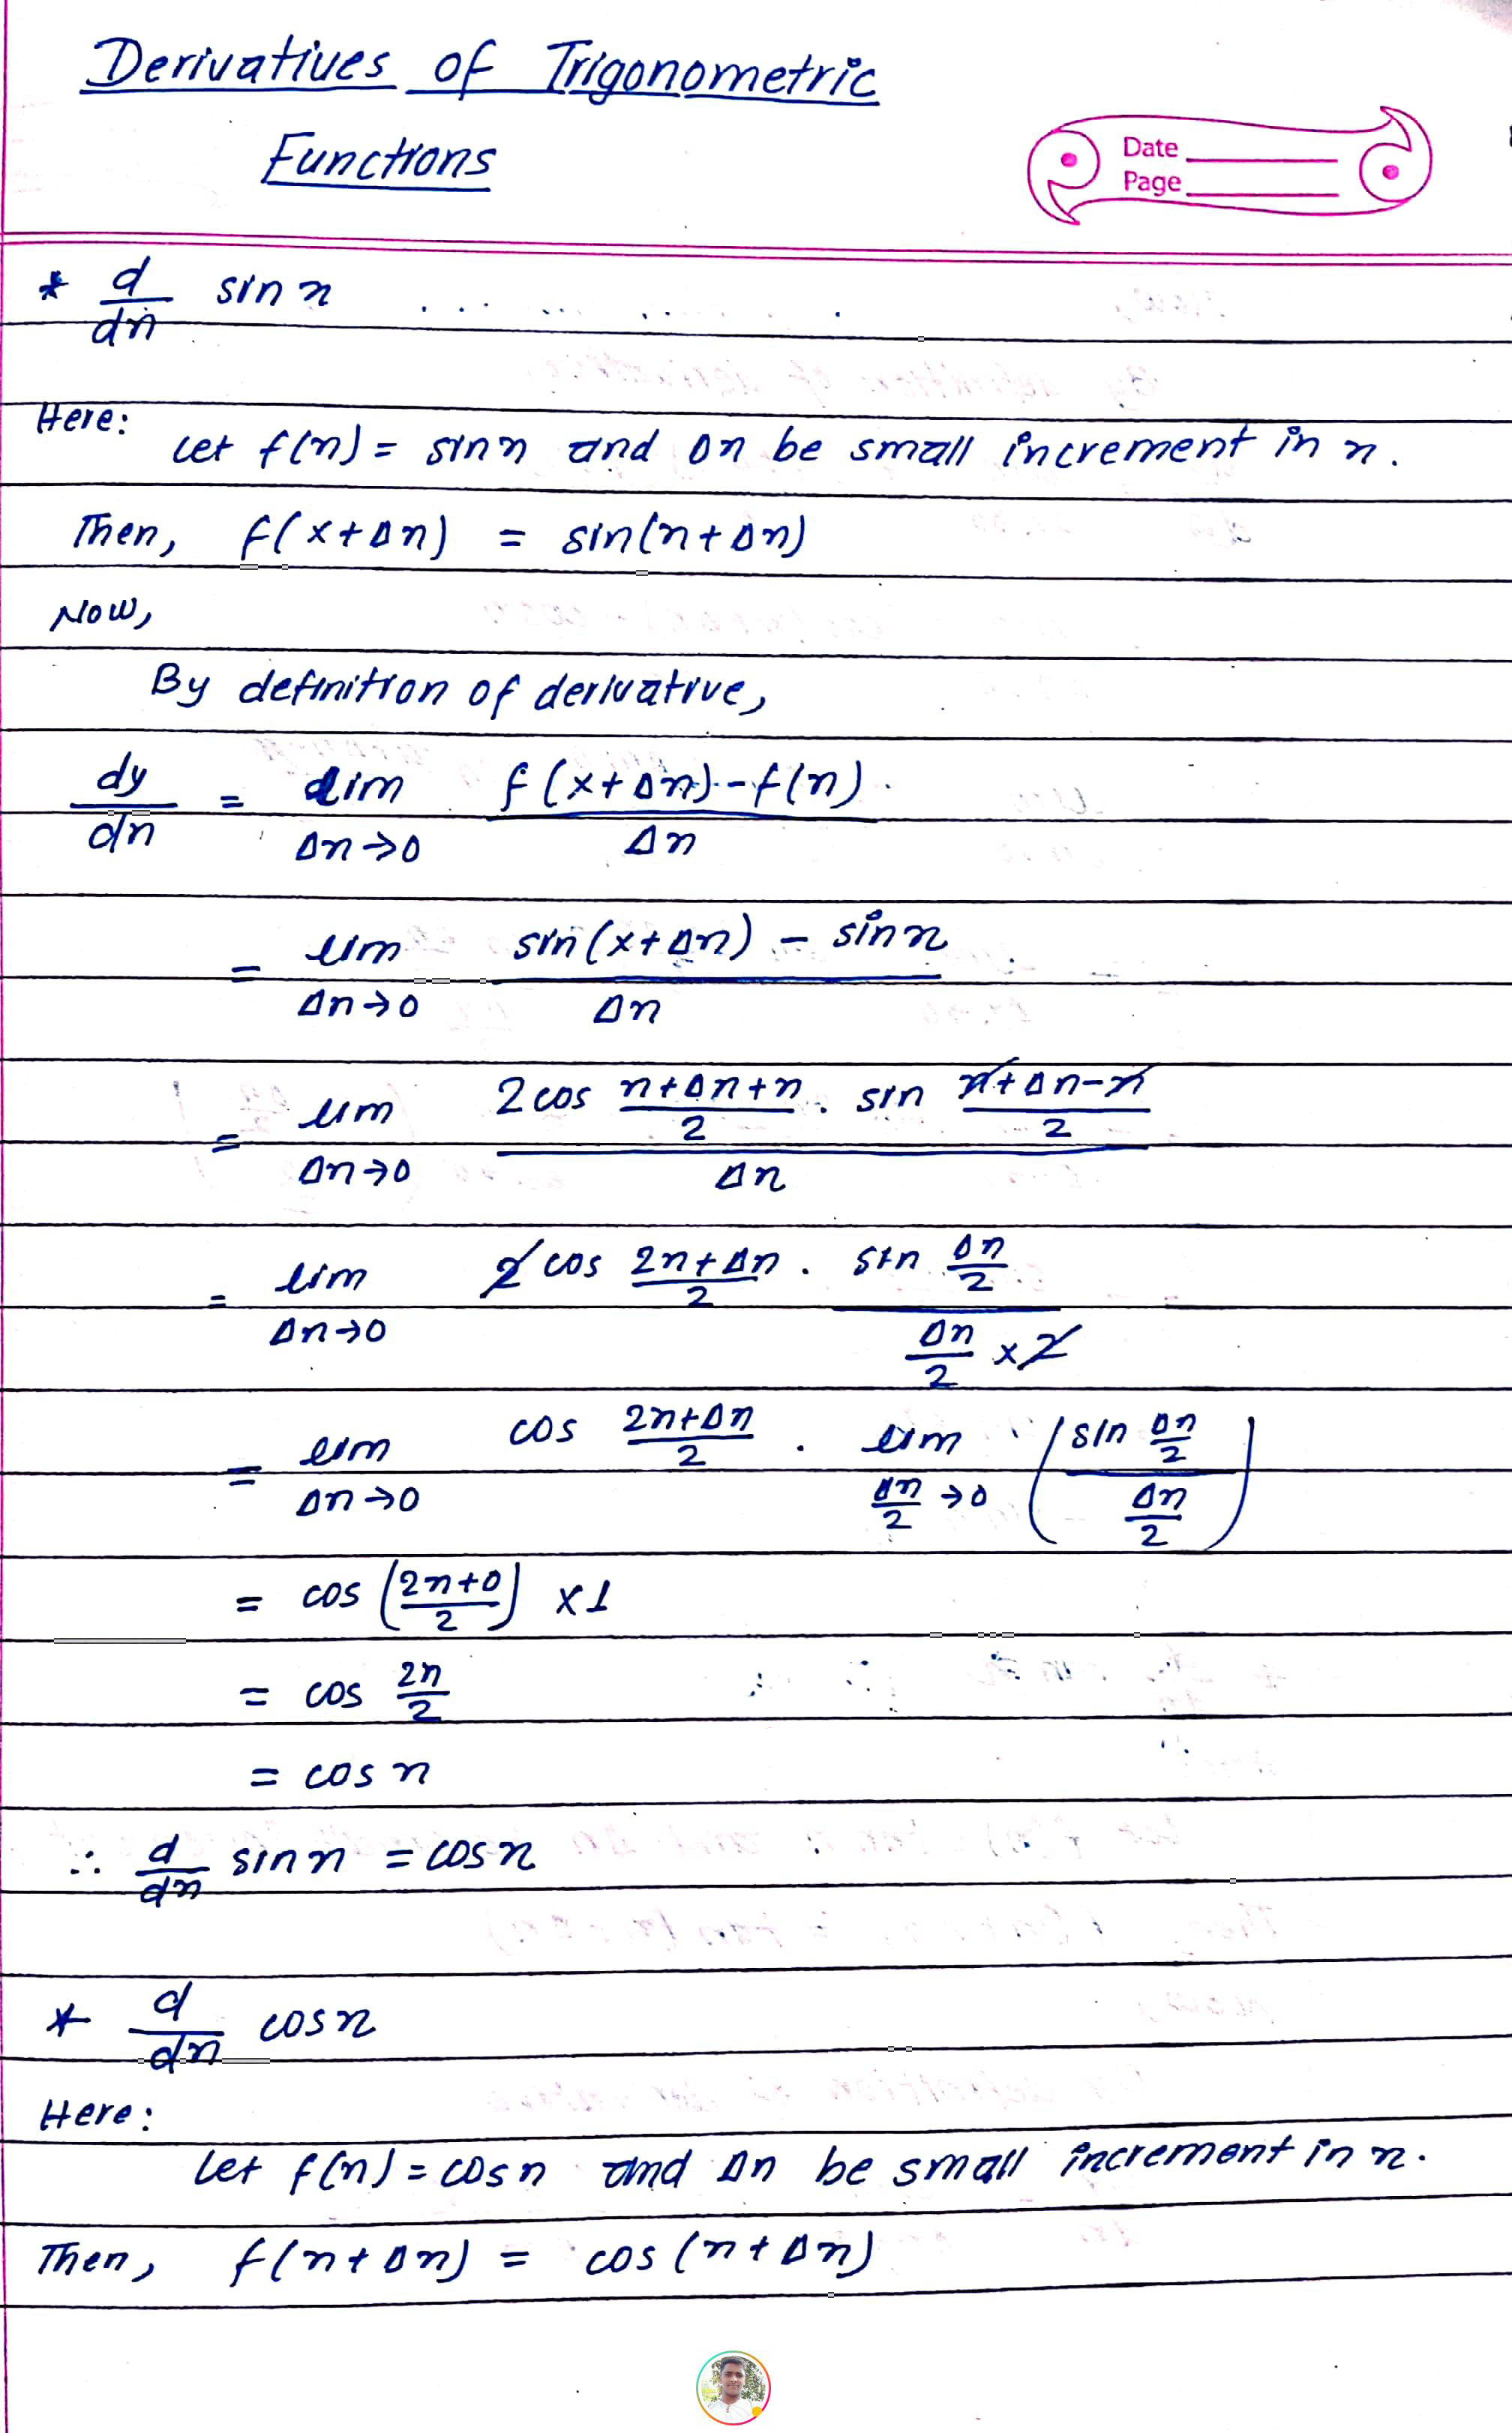 Derivatives of Trigonometric
Functions
Date
Page
* d/dx sin x
Here:
Let f(x) = sin x and Δx be small increment in x.
Then, f(x+Δx) = sin(x+Δx)
Now,
By definition of derivative,
dy/dx = lim Δx→0 f(x+Δx)-f(x) / Δx
= lim Δx→0 sin(x+Δx) - sin x / Δx
= lim Δx→0 2cos x+Δx+x/2 . sin x+Δx-x/2 / Δx
= lim Δx→0 2 cos 2x+Δx/2 . sin Δx/2 / Δx/2 ×2
= lim Δx→0 cos 2x+Δx/2 . lim Δx/2→0 (sin Δx/2 / Δx/2)
= cos (2x+0/2) ×1
= cos 2x/2
= cos x
∴ d/dx sin x = cos x
* d/dx cos x
Here:
Let f(x) = cos x and Δx be small increment in x.
Then, f(x+Δx) = cos(x+Δx)